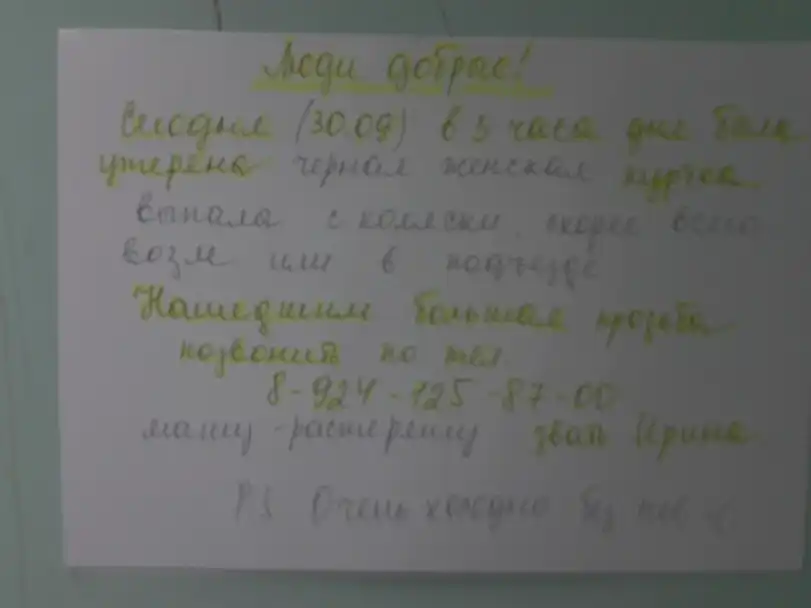 Люди добрые!
Сегодня (30.09) в 5 часа дня была
утеряна черная женская куртка
выпала с коляски, скорее всего
возле или в подъезде
Нашедшим большая прозьба
позвонить по тел
8-924-125-87-00
машу-растеряшу звать Ирина
P.S Очень холодно без нее :(